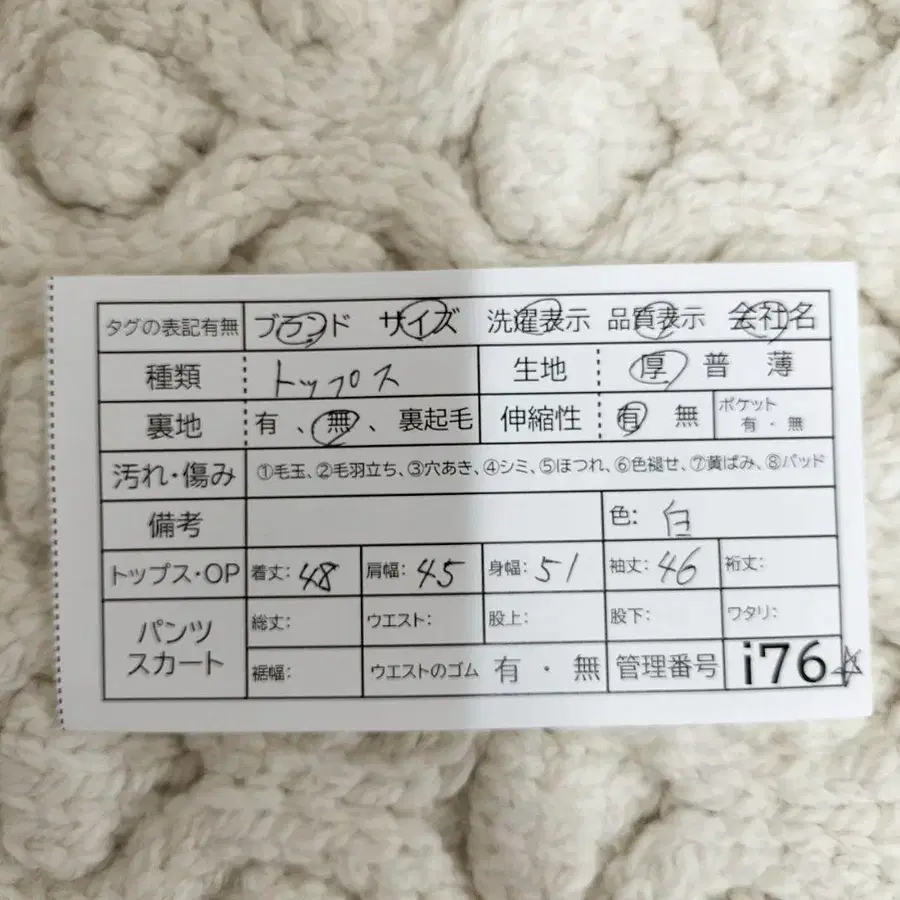 タグの表記有無 ブランド サイズ 洗濯表示 品質表示 会社名
種類 トップス 生地 厚 普 薄
裏地 有、無、裏起毛 伸縮性 有 無 ポケット 有・無
汚れ・傷み ①毛玉、②毛羽立ち、③穴あき、④シミ、⑤ほつれ、⑥色褪せ、⑦黄ばみ、⑧パッド
備考 色: 白
トップス・OP 着丈:48 肩幅:45 身幅:51 袖丈:46 裄丈:
パンツ スカート 総丈: ウエスト: 股上: 股下: ワタリ:
裾幅: ウエストのゴム 有・無 管理番号 i76☆